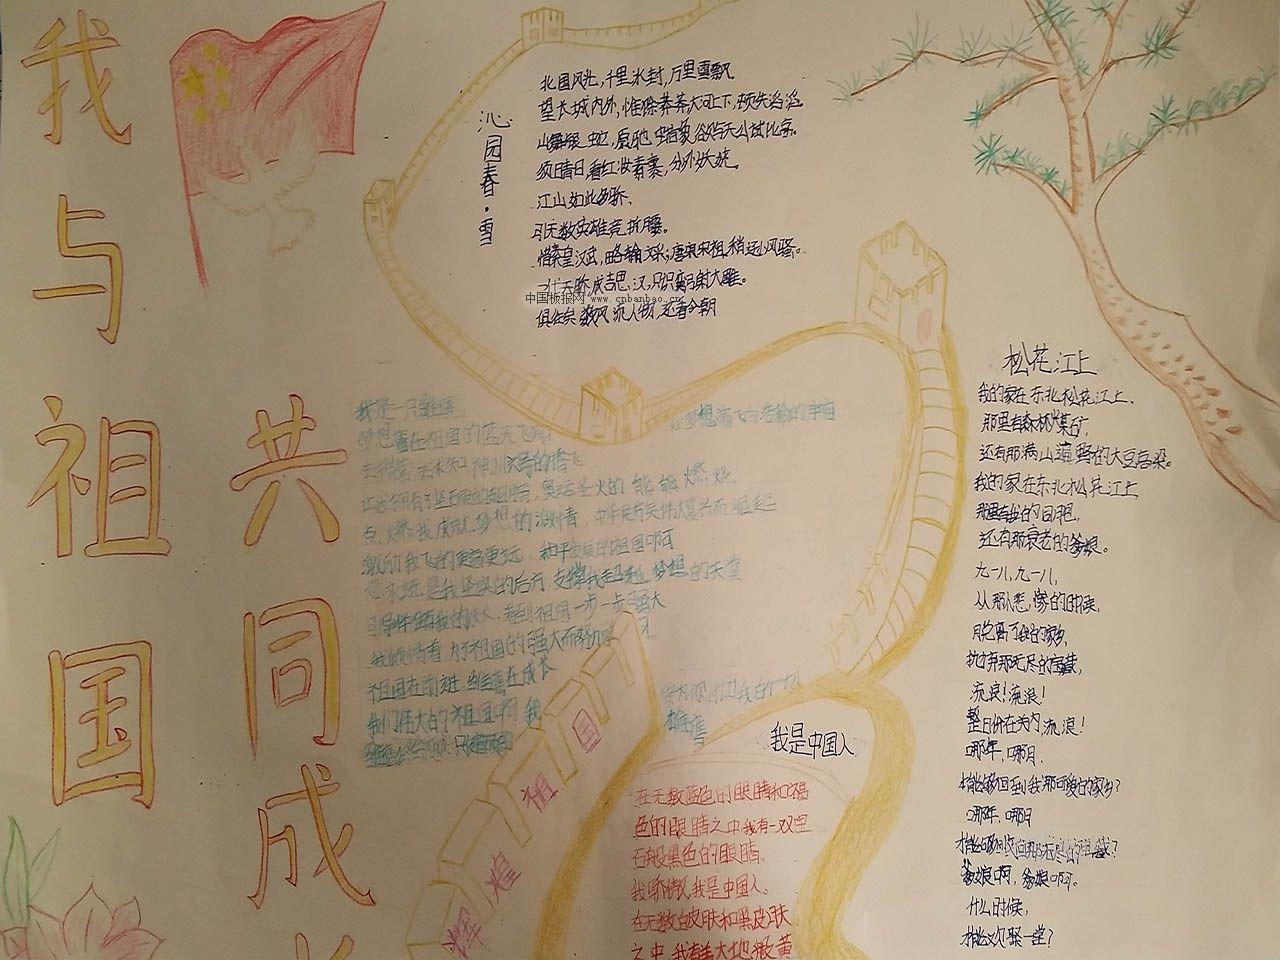 我与祖国
共同成长
沁园春·雪
北国风光,千里冰封,万里雪飘
望长城内外,惟馀莽莽大河上下,顿失滔滔
山舞银蛇,原驰蜡象欲与天公试比高。
须晴日,看红妆素裹,分外妖娆。
江山如此多骄、
引无数英雄竞折腰。
惜秦皇汉武,略输文采;唐宗宋祖,稍逊风骚。
一代天骄,成吉思汉,只识弯弓射大雕。
中国板报网 www.cnbanbao.cn
俱往矣 数风流人物,还看今朝
我是一只雏鹰
梦想着在祖国的蓝天飞翔
梦想着飞向浩瀚的宇宙
点燃我成就梦想的激情
激励我飞的更高更远,
您永远是我坚实的后方,支撑我起飞梦想的天堂
看到祖国一步一步强大
为了祖国的强大而努力
祖国在前进,雏鹰在成长
我们伟大的祖国啊 我
雄鹰
辉煌祖国
我是中国人
在无数蓝色的眼睛和褐
色的眼睛之中我有一双宝
石般黑色的眼睛、
我骄傲,我是中国人。
在无数白皮肤和黑皮肤
之中,我有着大地般黄
松花江上
我的家在东北松花江上、
那里有森林煤矿,
还有那满山遍野的大豆高粱。
我的家在东北松花江上
那里有我的同胞,
还有那衰老的爹娘。
九一八,九一八,
从那个悲惨的时候,
脱离了我的家乡,
抛弃那无尽的宝藏,
流浪!流浪!
整日价在关内,流浪!
哪年,哪月.
才能够回到我那可爱的家乡?
哪年,哪月
才能够收回那无尽的宝藏?
爹娘啊,爹娘啊。
什么时候,
才能欢聚一堂?